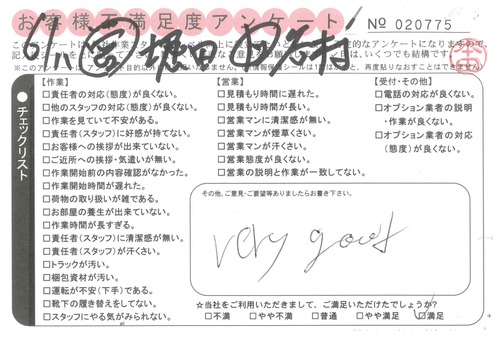 お客様不満足度アンケート
No 020775
6/1
※このアンケートは
【作業】
□責任者の対応(態度)が良くない。
□他のスタッフの対応(態度)が良くない。
□作業を見ていて不安がある。
□責任者(スタッフ)に好感が持てない。
□お客様への挨拶が出来ていない。
□ご近所への挨拶・気遣いが無い。
□作業開始前の内容確認がなかった。
□作業開始時間が遅れた。
□荷物の取り扱いが雑である。
□お部屋の養生が出来ていない。
□作業時間が長すぎる。
□責任者(スタッフ)に清潔感が無い。
□責任者(スタッフ)が汗くさい。
□トラックが汚い。
□梱包資材が汚い。
□運転が不安(下手)である。
□靴下の履き替えをしてない。
□スタッフにやる気がみられない。
【営業】
□見積もり時間に遅れた。
□見積もり時間が長い。
□営業マンに清潔感が無い。
□営業マンが煙草くさい。
□営業マンが汗くさい。
□営業態度が良くない。
□営業の説明と作業が一致してない。
【受付・その他】
□電話の対応が良くない。
□オプション業者の説明
・作業が良くない。
□オプション業者の対応
(態度)が良くない。
●チェックリスト
その他、ご意見・ご要望等ありましたらお書き下さい。
very good
☆当社をご利用いただきまして、ご満足いただけたでしょうか?
□不満 □やや不満 □普通 □やや満足 □満足